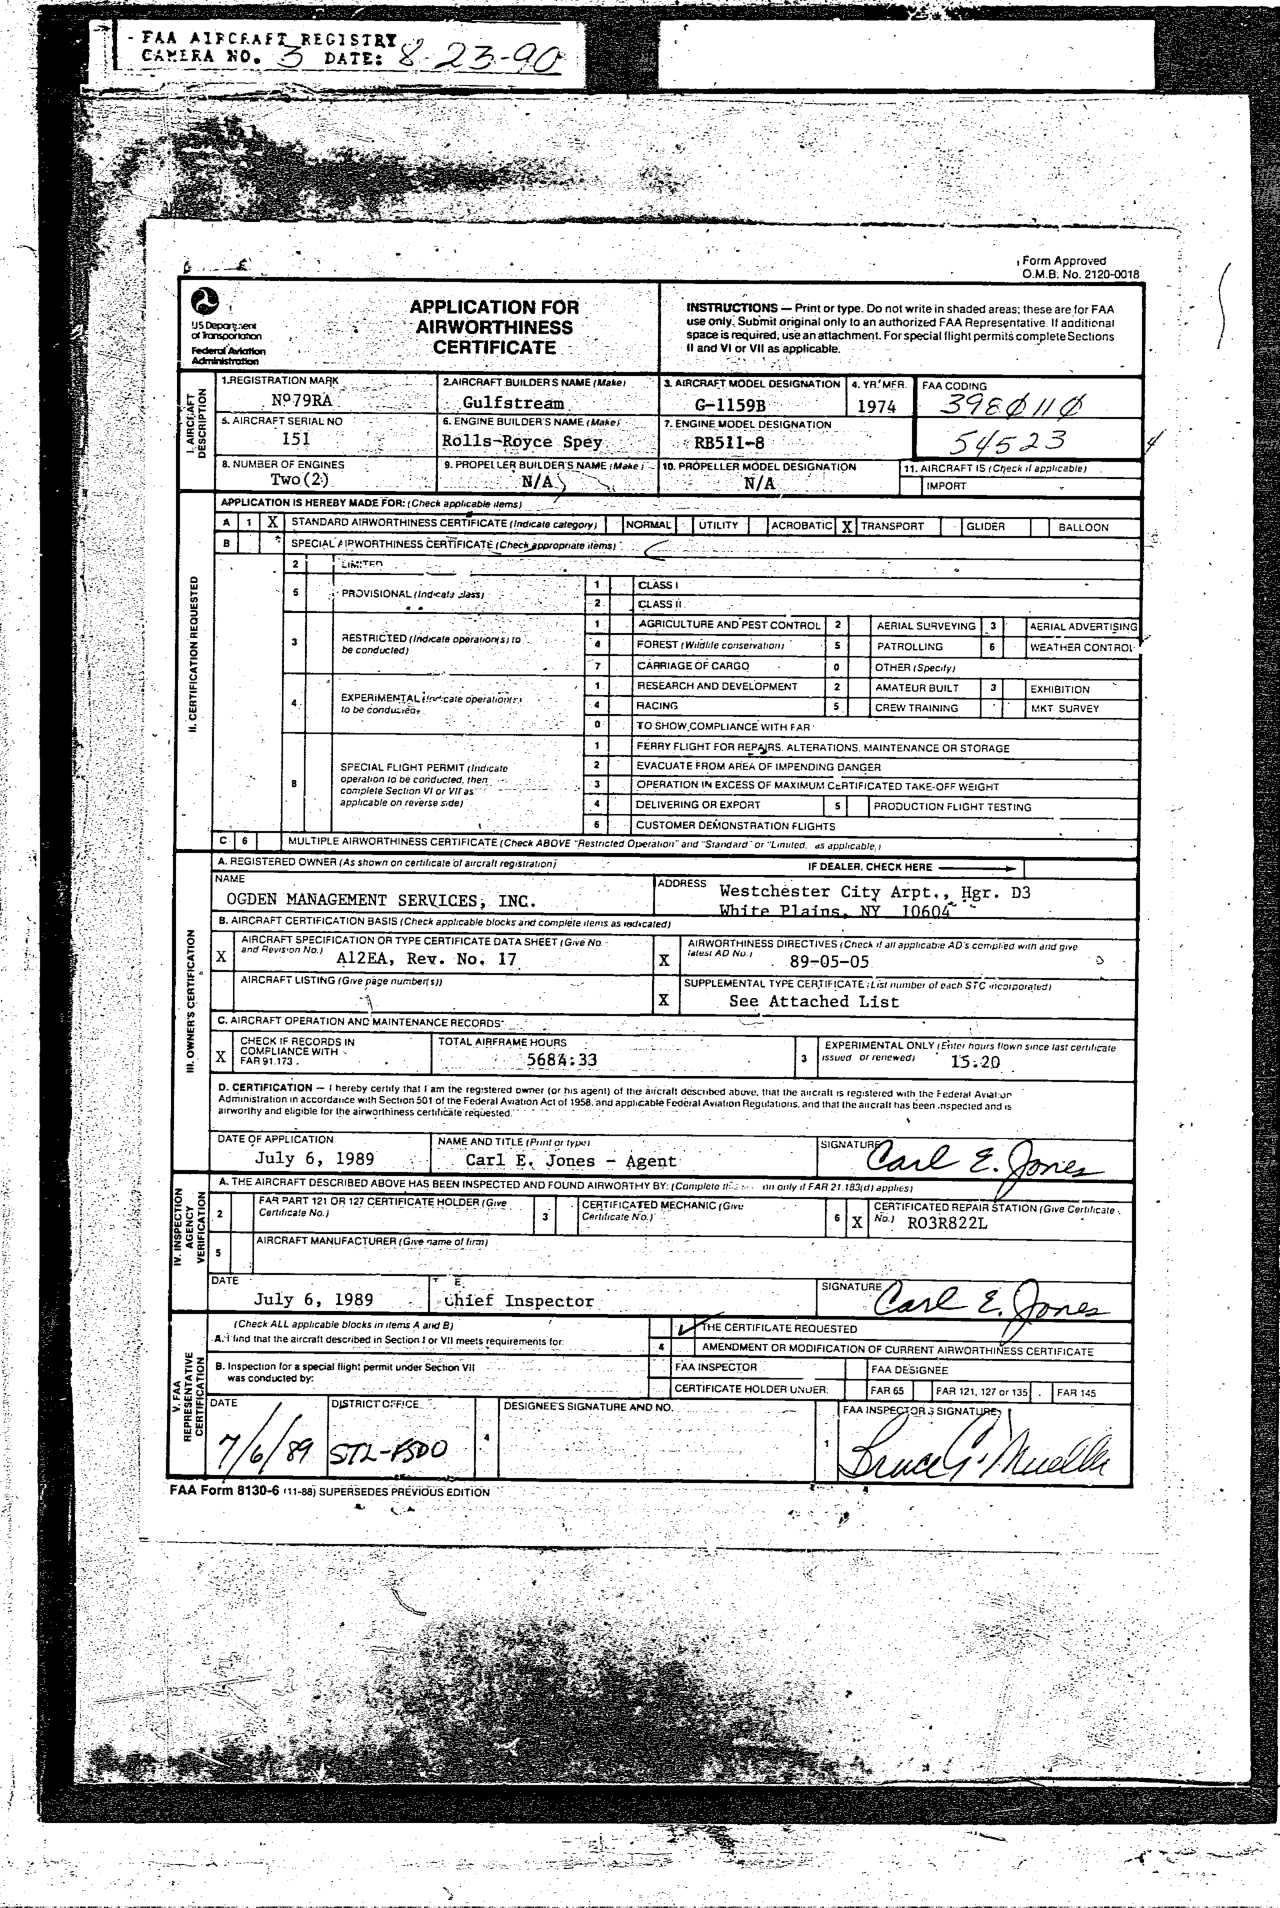 - FAA AIRCRAFT REGISTRY
CAMERA NO. 3 DATE: 8-23-90
Form Approved
O.M.B. No. 2120-0018
US Department
of Transportation
Federal Aviation
Administration
APPLICATION FOR
AIRWORTHINESS
CERTIFICATE
INSTRUCTIONS — Print or type. Do not write in shaded areas; these are for FAA
use only. Submit original only to an authorized FAA Representative. If additional
space is required, use an attachment. For special flight permits complete Sections
II and VI or VII as applicable.
I. AIRCRAFT DESCRIPTION
1. REGISTRATION MARK
Nº79RA
2. AIRCRAFT BUILDER'S NAME (Make)
Gulfstream
3. AIRCRAFT MODEL DESIGNATION
G-1159B
4. YR. MFR.
1974
FAA CODING
398Ø11Ø
54523
4
5. AIRCRAFT SERIAL NO
151
6. ENGINE BUILDER'S NAME (Make)
Rolls-Royce Spey
7. ENGINE MODEL DESIGNATION
RB511-8
8. NUMBER OF ENGINES
Two(2)
9. PROPELLER BUILDER'S NAME (Make)
N/A
10. PROPELLER MODEL DESIGNATION
N/A
11. AIRCRAFT IS (Check if applicable)
IMPORT
II. CERTIFICATION REQUESTED
APPLICATION IS HEREBY MADE FOR: (Check applicable items)
A 1 X STANDARD AIRWORTHINESS CERTIFICATE (Indicate category) NORMAL UTILITY ACROBATIC X TRANSPORT GLIDER BALLOON
B SPECIAL AIRWORTHINESS CERTIFICATE (Check appropriate items)
2 LIMITED
5 PROVISIONAL (Indicate class)
1 CLASS I
2 CLASS II
3 RESTRICTED (Indicate operation(s) to
be conducted)
1 AGRICULTURE AND PEST CONTROL 2 AERIAL SURVEYING 3 AERIAL ADVERTISING
4 FOREST (Wildlife conservation) 5 PATROLLING 6 WEATHER CONTROL
7 CARRIAGE OF CARGO 0 OTHER (Specify)
4 EXPERIMENTAL (Indicate operation(s)
to be conducted)
1 RESEARCH AND DEVELOPMENT 2 AMATEUR BUILT 3 EXHIBITION
4 RACING 5 CREW TRAINING MKT SURVEY
0 TO SHOW COMPLIANCE WITH FAR
8 SPECIAL FLIGHT PERMIT (Indicate
operation to be conducted, then
complete Section VI or VII as
applicable on reverse side)
1 FERRY FLIGHT FOR REPAIRS, ALTERATIONS, MAINTENANCE OR STORAGE
2 EVACUATE FROM AREA OF IMPENDING DANGER
3 OPERATION IN EXCESS OF MAXIMUM CERTIFICATED TAKE-OFF WEIGHT
4 DELIVERING OR EXPORT 5 PRODUCTION FLIGHT TESTING
6 CUSTOMER DEMONSTRATION FLIGHTS
C 6 MULTIPLE AIRWORTHINESS CERTIFICATE (Check ABOVE "Restricted Operation" and "Standard" or "Limited, as applicable.)
III. OWNER'S CERTIFICATION
A. REGISTERED OWNER (As shown on certificate of aircraft registration)
IF DEALER, CHECK HERE
NAME
OGDEN MANAGEMENT SERVICES, INC.
ADDRESS
Westchester City Arpt., Hgr. D3
White Plains, NY 10604
B. AIRCRAFT CERTIFICATION BASIS (Check applicable blocks and complete items as indicated)
X AIRCRAFT SPECIFICATION OR TYPE CERTIFICATE DATA SHEET (Give No.
and Revision No.)
A12EA, Rev. No. 17
X AIRWORTHINESS DIRECTIVES (Check if all applicable AD's complied with and give
latest AD No.)
89-05-05
AIRCRAFT LISTING (Give page number(s))
X SUPPLEMENTAL TYPE CERTIFICATE (List number of each STC incorporated)
See Attached List
C. AIRCRAFT OPERATION AND MAINTENANCE RECORDS
X CHECK IF RECORDS IN
COMPLIANCE WITH
FAR 91.173
TOTAL AIRFRAME HOURS
5684:33
3 EXPERIMENTAL ONLY (Enter hours flown since last certificate
issued or renewed)
15:20
D. CERTIFICATION — I hereby certify that I am the registered owner (or his agent) of the aircraft described above, that the aircraft is registered with the Federal Aviation
Administration in accordance with Section 501 of the Federal Aviation Act of 1958, and applicable Federal Aviation Regulations, and that the aircraft has been inspected and is
airworthy and eligible for the airworthiness certificate requested.
DATE OF APPLICATION
July 6, 1989
NAME AND TITLE (Print or type)
Carl E. Jones - Agent
SIGNATURE
Carl E. Jones
IV. INSPECTION AGENCY VERIFICATION
A. THE AIRCRAFT DESCRIBED ABOVE HAS BEEN INSPECTED AND FOUND AIRWORTHY BY: (Complete this on only if FAR 21.183(d) applies)
2 FAR PART 121 OR 127 CERTIFICATE HOLDER (Give
Certificate No.)
3 CERTIFICATED MECHANIC (Give
Certificate No.)
6 X CERTIFICATED REPAIR STATION (Give Certificate
No.) RO3R822L
5 AIRCRAFT MANUFACTURER (Give name of firm)
DATE
July 6, 1989
T E
Chief Inspector
SIGNATURE
Carl E. Jones
V. FAA REPRESENTATIVE CERTIFICATION
(Check ALL applicable blocks in items A and B)
A. I find that the aircraft described in Section I or VII meets requirements for:
THE CERTIFICATE REQUESTED
4 AMENDMENT OR MODIFICATION OF CURRENT AIRWORTHINESS CERTIFICATE
B. Inspection for a special flight permit under Section VII
was conducted by:
FAA INSPECTOR FAA DESIGNEE
CERTIFICATE HOLDER UNDER: FAR 65 FAR 121, 127 or 135 FAR 145
DATE
7/6/89
DISTRICT OFFICE
STL-FSDO
4
DESIGNEE'S SIGNATURE AND NO.
1
FAA INSPECTOR'S SIGNATURE
Bruce G. Mueller
FAA Form 8130-6 (11-88) SUPERSEDES PREVIOUS EDITION